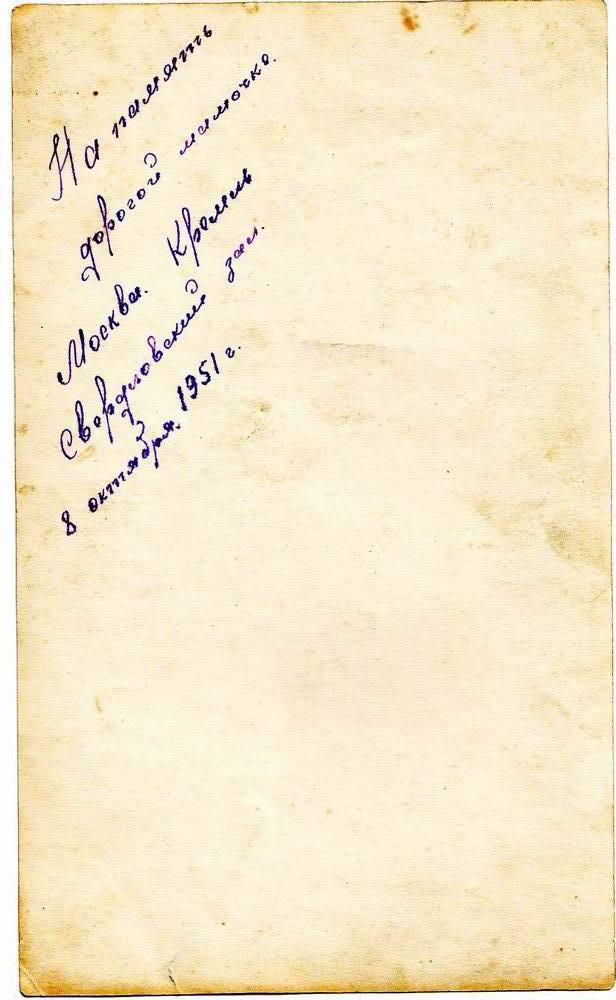 На память
дорогой мамочке.
Москва. Кремль
Свердловский зал.
8 октября. 1951 г.